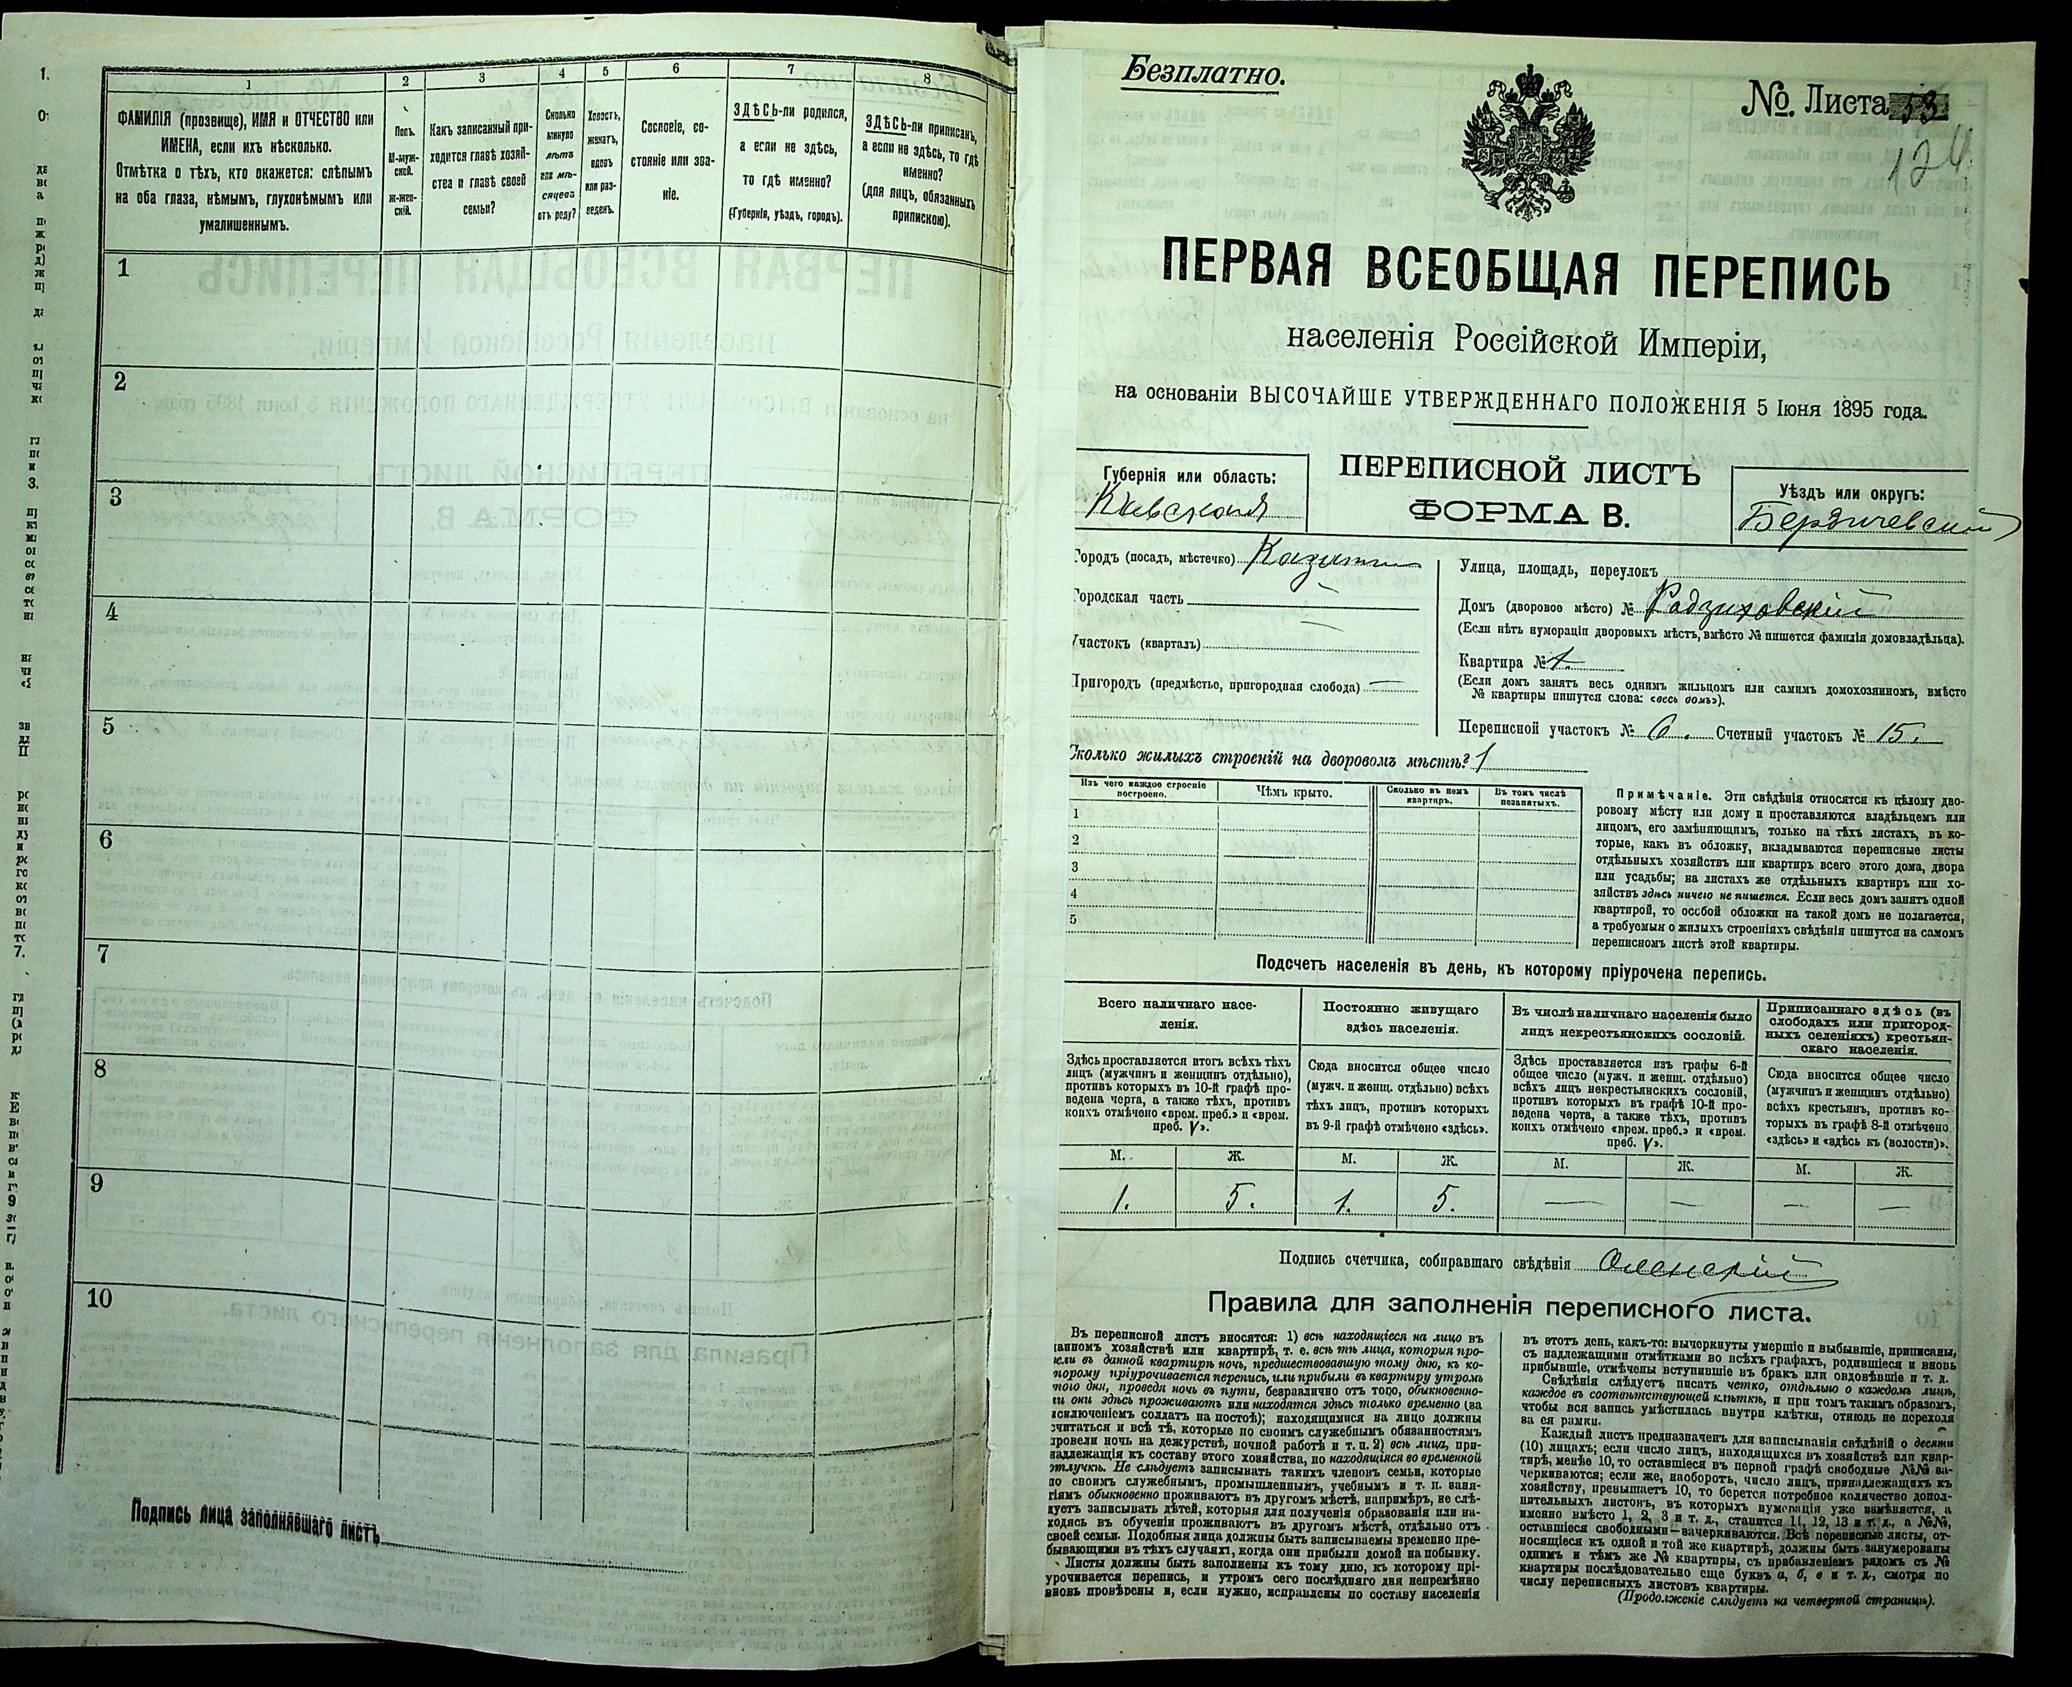 1
2
3
4
5
6
7
8
ФАМИЛІЯ (прозвище), ИМЯ и ОТЧЕСТВО или
ИМЕНА, если ихъ нѣсколько.
Отмѣтка о тѣхъ, кто окажется: слѣпымъ
на оба глаза, нѣмымъ, глухонѣмымъ или
умалишеннымъ.
Полъ.
М-муж-
ской.
Ж-жен-
скій.
Какъ записанный при-
ходится главѣ хозяй-
ства и главѣ своей
семьи?
Сколько
минуло
лѣтъ
или мѣ-
сяцевъ
отъ роду?
Холостъ,
женатъ,
вдовъ
или раз-
веденъ.
Сословіе, со-
стояніе или зва-
ніе.
ЗДѢСЬ-ли родился,
а если не здѣсь,
то гдѣ именно?
(Губернія, уѣздъ, городъ).
ЗДѢСЬ-ли приписанъ,
а если не здѣсь, то гдѣ
именно?
(для лицъ, обязанныхъ
припискою).
1
2
3
4
5
6
7
8
9
10
Подпись лица заполнявшаго листъ
Безплатно.
№ Листа 53
124
ПЕРВАЯ ВСЕОБЩАЯ ПЕРЕПИСЬ
населенія Россійской Имперіи,
на основаніи ВЫСОЧАЙШЕ УТВЕРЖДЕННАГО ПОЛОЖЕНІЯ 5 Іюня 1895 года.
Губернія или область:
Кіевская
ПЕРЕПИСНОЙ ЛИСТЪ
ФОРМА В.
Уѣздъ или округъ:
Бердичевскій
Городъ (посадъ, мѣстечко) Казатин
Городская часть
Участокъ (кварталъ)
Пригородъ (предмѣстье, пригородная слобода)
Улица, площадь, переулокъ
Домъ (дворовое мѣсто) № Радзиховскій
(Если нѣтъ нумераціи дворовыхъ мѣстъ, вмѣсто № пишется фамилія домовладѣльца).
Квартира № 1.
(Если домъ занятъ весь однимъ жильцомъ или самимъ домохозяиномъ, вмѣсто
№ квартиры пишутся слова: «весь домъ»).
Переписной участокъ № 6. Счетный участокъ № 15.
Сколько жилыхъ строеній на дворовомъ мѣстѣ? 1
Изъ чего каждое строеніе
построено.
Чѣмъ крыто.
Сколько въ немъ
квартиръ.
Въ томъ числѣ
незанятыхъ.
1
2
3
4
5
Примѣчаніе. Эти свѣдѣнія относятся къ цѣлому дво-
ровому мѣсту или дому и проставляются владѣльцемъ или
лицомъ, его замѣняющимъ, только на тѣхъ листахъ, въ ко-
торые, какъ въ обложку, вкладываются переписные листы
отдѣльныхъ хозяйствъ или квартиръ всего этого дома, двора
или усадьбы; на листахъ же отдѣльныхъ квартиръ или хо-
зяйствъ здѣсь ничего не пишется. Если весь домъ занятъ одной
квартирой, то особой обложки на такой домъ не полагается,
а требуемыя о жилыхъ строеніяхъ свѣдѣнія пишутся на самомъ
переписномъ листѣ этой квартиры.
Подсчетъ населенія въ день, къ которому пріурочена перепись.
Всего наличнаго насе-
ленія.
Здѣсь проставляется итогъ всѣхъ тѣхъ
лицъ (мужчинъ и женщинъ отдѣльно),
противъ которыхъ въ 10-й графѣ про-
ведена черта, а также тѣхъ, противъ
коихъ отмѣчено «врем. преб.» и «врем.
преб. V».
Постоянно живущаго
здѣсь населенія.
Сюда вносится общее число
(мужч. и женщ. отдѣльно) всѣхъ
тѣхъ лицъ, противъ которыхъ
въ 9-й графѣ отмѣчено «здѣсь».
Въ числѣ наличнаго населенія было
лицъ некрестьянскихъ сословій.
Здѣсь проставляется изъ графы 6-й
общее число (мужч. и женщ. отдѣльно)
всѣхъ лицъ некрестьянскихъ сословій,
противъ которыхъ въ графѣ 10-й про-
ведена черта, а также тѣхъ, противъ
коихъ отмѣчено «врем. преб.» и «врем.
преб. V».
Приписаннаго здѣсь (въ
слободахъ или пригород-
ныхъ селеніяхъ) крестьян-
скаго населенія.
Сюда вносится общее число
(мужчинъ и женщинъ отдѣльно)
всѣхъ крестьянъ, противъ ко-
торыхъ въ графѣ 8-й отмѣчено
«здѣсь» и «здѣсь къ (волости)».
М. Ж. М. Ж. М. Ж. М. Ж.
1. 5. 1. 5. — — — —
Подпись счетчика, собиравшаго свѣдѣнія
Правила для заполненія переписного листа.
Въ переписной листъ вносятся: 1) всѣ находящіеся на лицо въ
данномъ хозяйствѣ или квартирѣ, т. е. всѣ тѣ лица, которыя про-
вели въ данной квартирѣ ночь, предшествовавшую тому дню, къ ко-
торому пріурочивается перепись, или прибыли въ квартиру утромъ
того дня, проведя ночь въ пути, безразлично отъ того, обыкновенно-
ли они здѣсь проживаютъ или находятся здѣсь только временно (за
исключеніемъ солдатъ на постоѣ); находящимися на лицо должны
считаться и всѣ тѣ, которые по своимъ служебнымъ обязанностямъ
провели ночь на дежурствѣ, ночной работѣ и т. п. 2) всѣ лица, при-
надлежащія къ составу этого хозяйства, но находящіяся во временной
отлучкѣ. Не слѣдуетъ записывать такихъ членовъ семьи, которые
по своимъ служебнымъ, промышленнымъ, учебнымъ и т. п. заня-
тіямъ обыкновенно проживаютъ въ другомъ мѣстѣ, напримѣръ, не слѣ-
дуетъ записывать дѣтей, которыя для полученія образованія или на-
ходясь въ обученіи проживаютъ въ другомъ мѣстѣ, отдѣльно отъ
своей семьи. Подобныя лица должны быть записываемы временно пре-
бывающими въ тѣхъ случаяхъ, когда они прибыли домой на побывку.
Листы должны быть заполнены къ тому дню, къ которому прі-
урочивается перепись, и утромъ сего послѣдняго дня непремѣнно
вновь провѣрены и, если нужно, исправлены по составу населенія
въ этотъ день, какъ-то: вычеркнуты умершіе и выбывшіе, приписаны,
съ надлежащими отмѣтками во всѣхъ графахъ, родившіеся и вновь
прибывшіе, отмѣчены вступившіе въ бракъ или овдовѣвшіе и т. д.
Свѣдѣнія слѣдуетъ писать четко, отдѣльно о каждомъ лицѣ,
каждое въ соотвѣтствующей клѣткѣ, и при томъ такимъ образомъ,
чтобы вся запись умѣстилась внутри клѣтки, отнюдь не переходя
за ея рамки.
Каждый листъ предназначенъ для записыванія свѣдѣній о десяти
(10) лицахъ; если число лицъ, находящихся въ хозяйствѣ или квар-
тирѣ, менѣе 10, то оставшіеся въ первой графѣ свободные №№ за-
черкиваются; если же, наоборотъ, число лицъ, принадлежащихъ къ
хозяйству, превышаетъ 10, то берется потребное количество допол-
нительныхъ листовъ, въ которыхъ нумерація уже измѣняется, а
именно вмѣсто 1, 2, 3 и т. д., ставится 11, 12, 13 и т. д., а №№,
оставшіеся свободными—зачеркиваются. Всѣ переписные листы, от-
носящіеся къ одной и той же квартирѣ, должны быть занумерованы
однимъ и тѣмъ же № квартиры, съ прибавленіемъ рядомъ съ №
квартиры послѣдовательно еще буквъ а, б, в и т. д., смотря по
числу переписныхъ листовъ квартиры.
(Продолженіе слѣдуетъ на четвертой страницѣ).